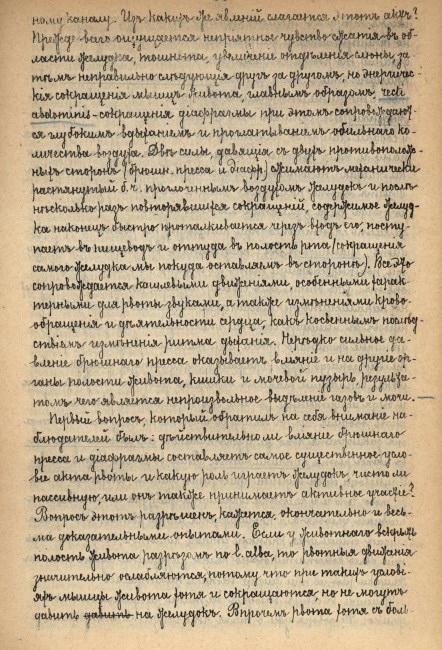 ному каналу. Изъ какихъ же явленій слагается этотъ актъ?
Прежде всего ощущается непріятное чувство сжатія въ об-
ласти желудка, тошнота, увеличеніе отдѣленія слюны, за
тѣмъ неправильно слѣдующія другъ за другомъ, но энергичес-
кія сокращенія мышцъ живота, главнымъ образомъ, recti
abdominis - сокращенія діафрагмы при этомъ сопровождают-
ся глубокимъ вдыханіемъ и проглатываніемъ обильнаго ко-
личества воздуха. Двѣ силы, давящія съ двухъ противополож-
ныхъ сторонъ (брюшн. пресса и діафр.) сжимаютъ механически
растянутый б. ч. проглоченнымъ воздухомъ желудокъ и послѣ
нѣсколько разъ повторявшихся сокращеній, содержимое желуд-
ка наконецъ быстро проталкивается черезъ входъ его, посту-
паетъ въ пищеводъ и оттуда въ полость рта (сокращенія
самого желудка мы покуда оставляемъ въ сторонѣ). Все это
сопровождается кашлевыми движеніями, особенными харак-
терными для рвоты звуками, а также измѣненіями крово-
обращенія и дѣятельности сердца, какъ косвеннымъ послѣд-
ствіемъ измѣненія ритма дыханія. Нерѣдко сильное да-
вленіе брюшнаго пресса оказываетъ вліяніе и на другіе ор-
ганы полости живота, кишки и мочевой пузырь, результа-
томъ чего является непроизвольное выдѣленіе газовъ и мочи.
Первый вопросъ, который обратилъ на себя вниманіе на-
блюдателей былъ: дѣйствительно ли вліяніе брюшнаго
пресса и діафрагмы составляетъ самое существенное усло-
віе акта рвоты и какую роль играетъ желудокъ чисто ли
пассивную, или онъ также принимаетъ активное участіе?
Вопросъ этотъ разрѣшенъ, кажется, окончательно и весь-
ма доказательными опытами. Если у животнаго вскрыть
полость живота разрѣзомъ по l. alba, то рвотныя движенія
значительно ослабляются, потому что при такихъ услові-
яхъ мышцы живота хотя и сокращаются, но не могутъ
давить давить на желудокъ. Впрочемъ рвота хотя съ боль